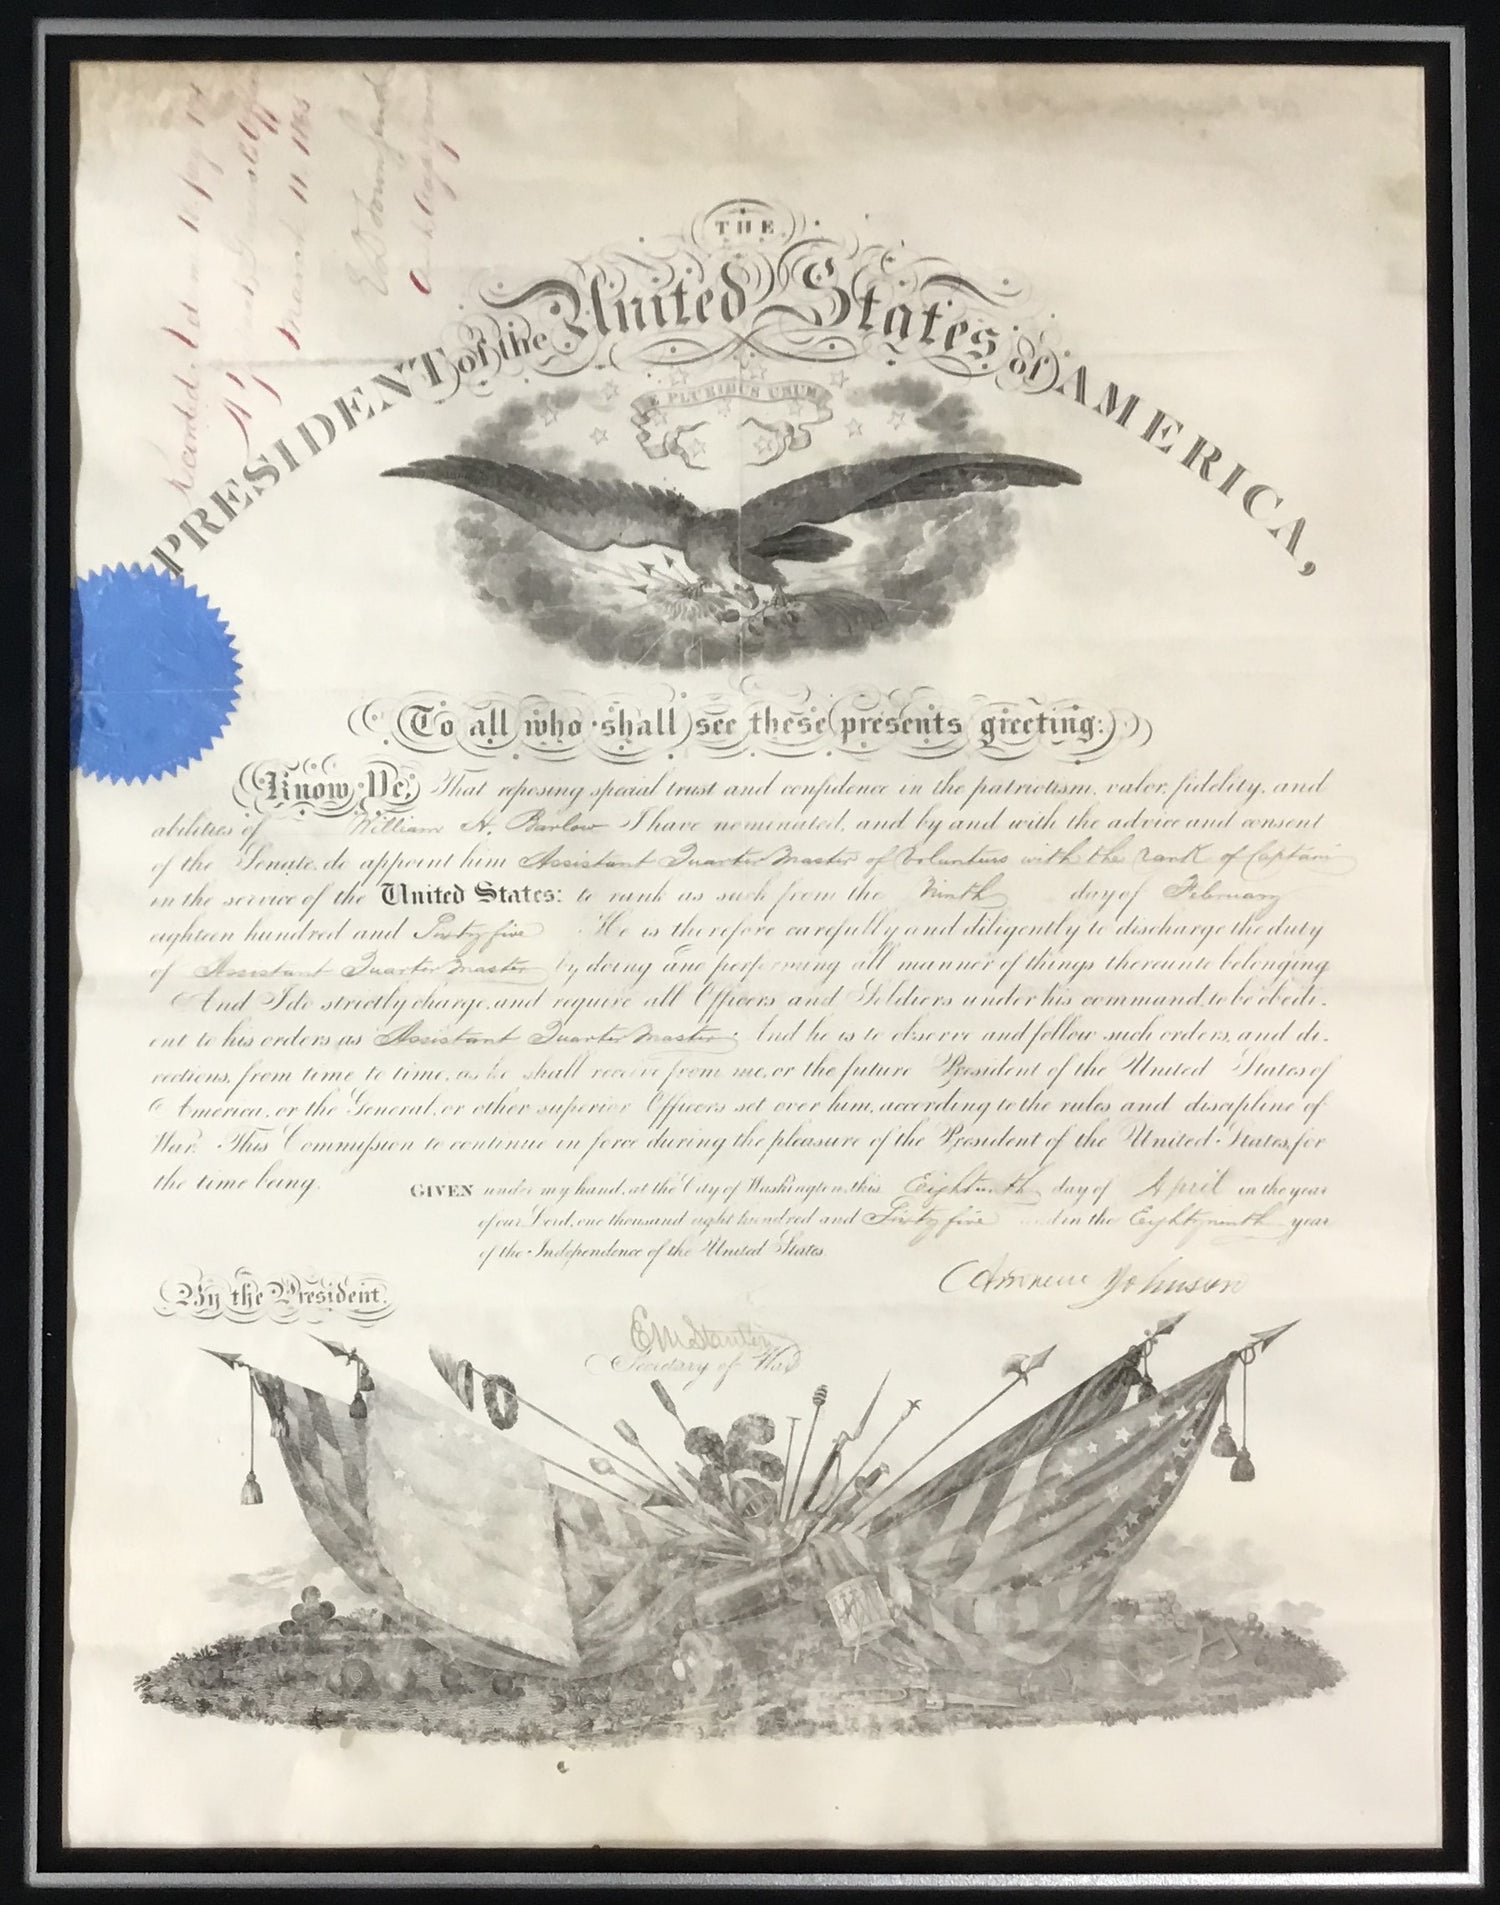 THE
PRESIDENT of the United States of AMERICA,
E PLURIBUS UNUM
To all who shall see these presents greeting:
Know Ye, That reposing special trust and confidence in the patriotism, valor, fidelity, and
abilities of William H. Barlow I have nominated, and by and with the advice and consent
of the Senate, do appoint him Assistant Quarter Master of Volunteers with the rank of Captain
in the service of the United States: to rank as such from the Ninth day of February
eighteen hundred and Sixty five He is therefore carefully and diligently to discharge the duty
of Assistant Quarter Master by doing and performing all manner of things thereunto belonging
And I do strictly charge, and require all Officers and Soldiers under his command, to be obedi-
ent to his orders as Assistant Quarter Master. And he is to observe and follow such orders, and di-
rections, from time to time, as he shall receive from me, or the future President of the United States of
America, or the General, or other superior Officers set over him, according to the rules and discipline of
War. This Commission to continue in force during the pleasure of the President of the United States, for
the time being.
GIVEN under my hand, at the City of Washington, this Eighteenth day of April in the year
of our Lord, one thousand eight hundred and Sixty five and in the Eighty ninth year
of the Independence of the United States.
Andrew Johnson
By the President.
E M Stanton
Secretary of War
Recorded Vol
March 11. 1865
E D Townsend